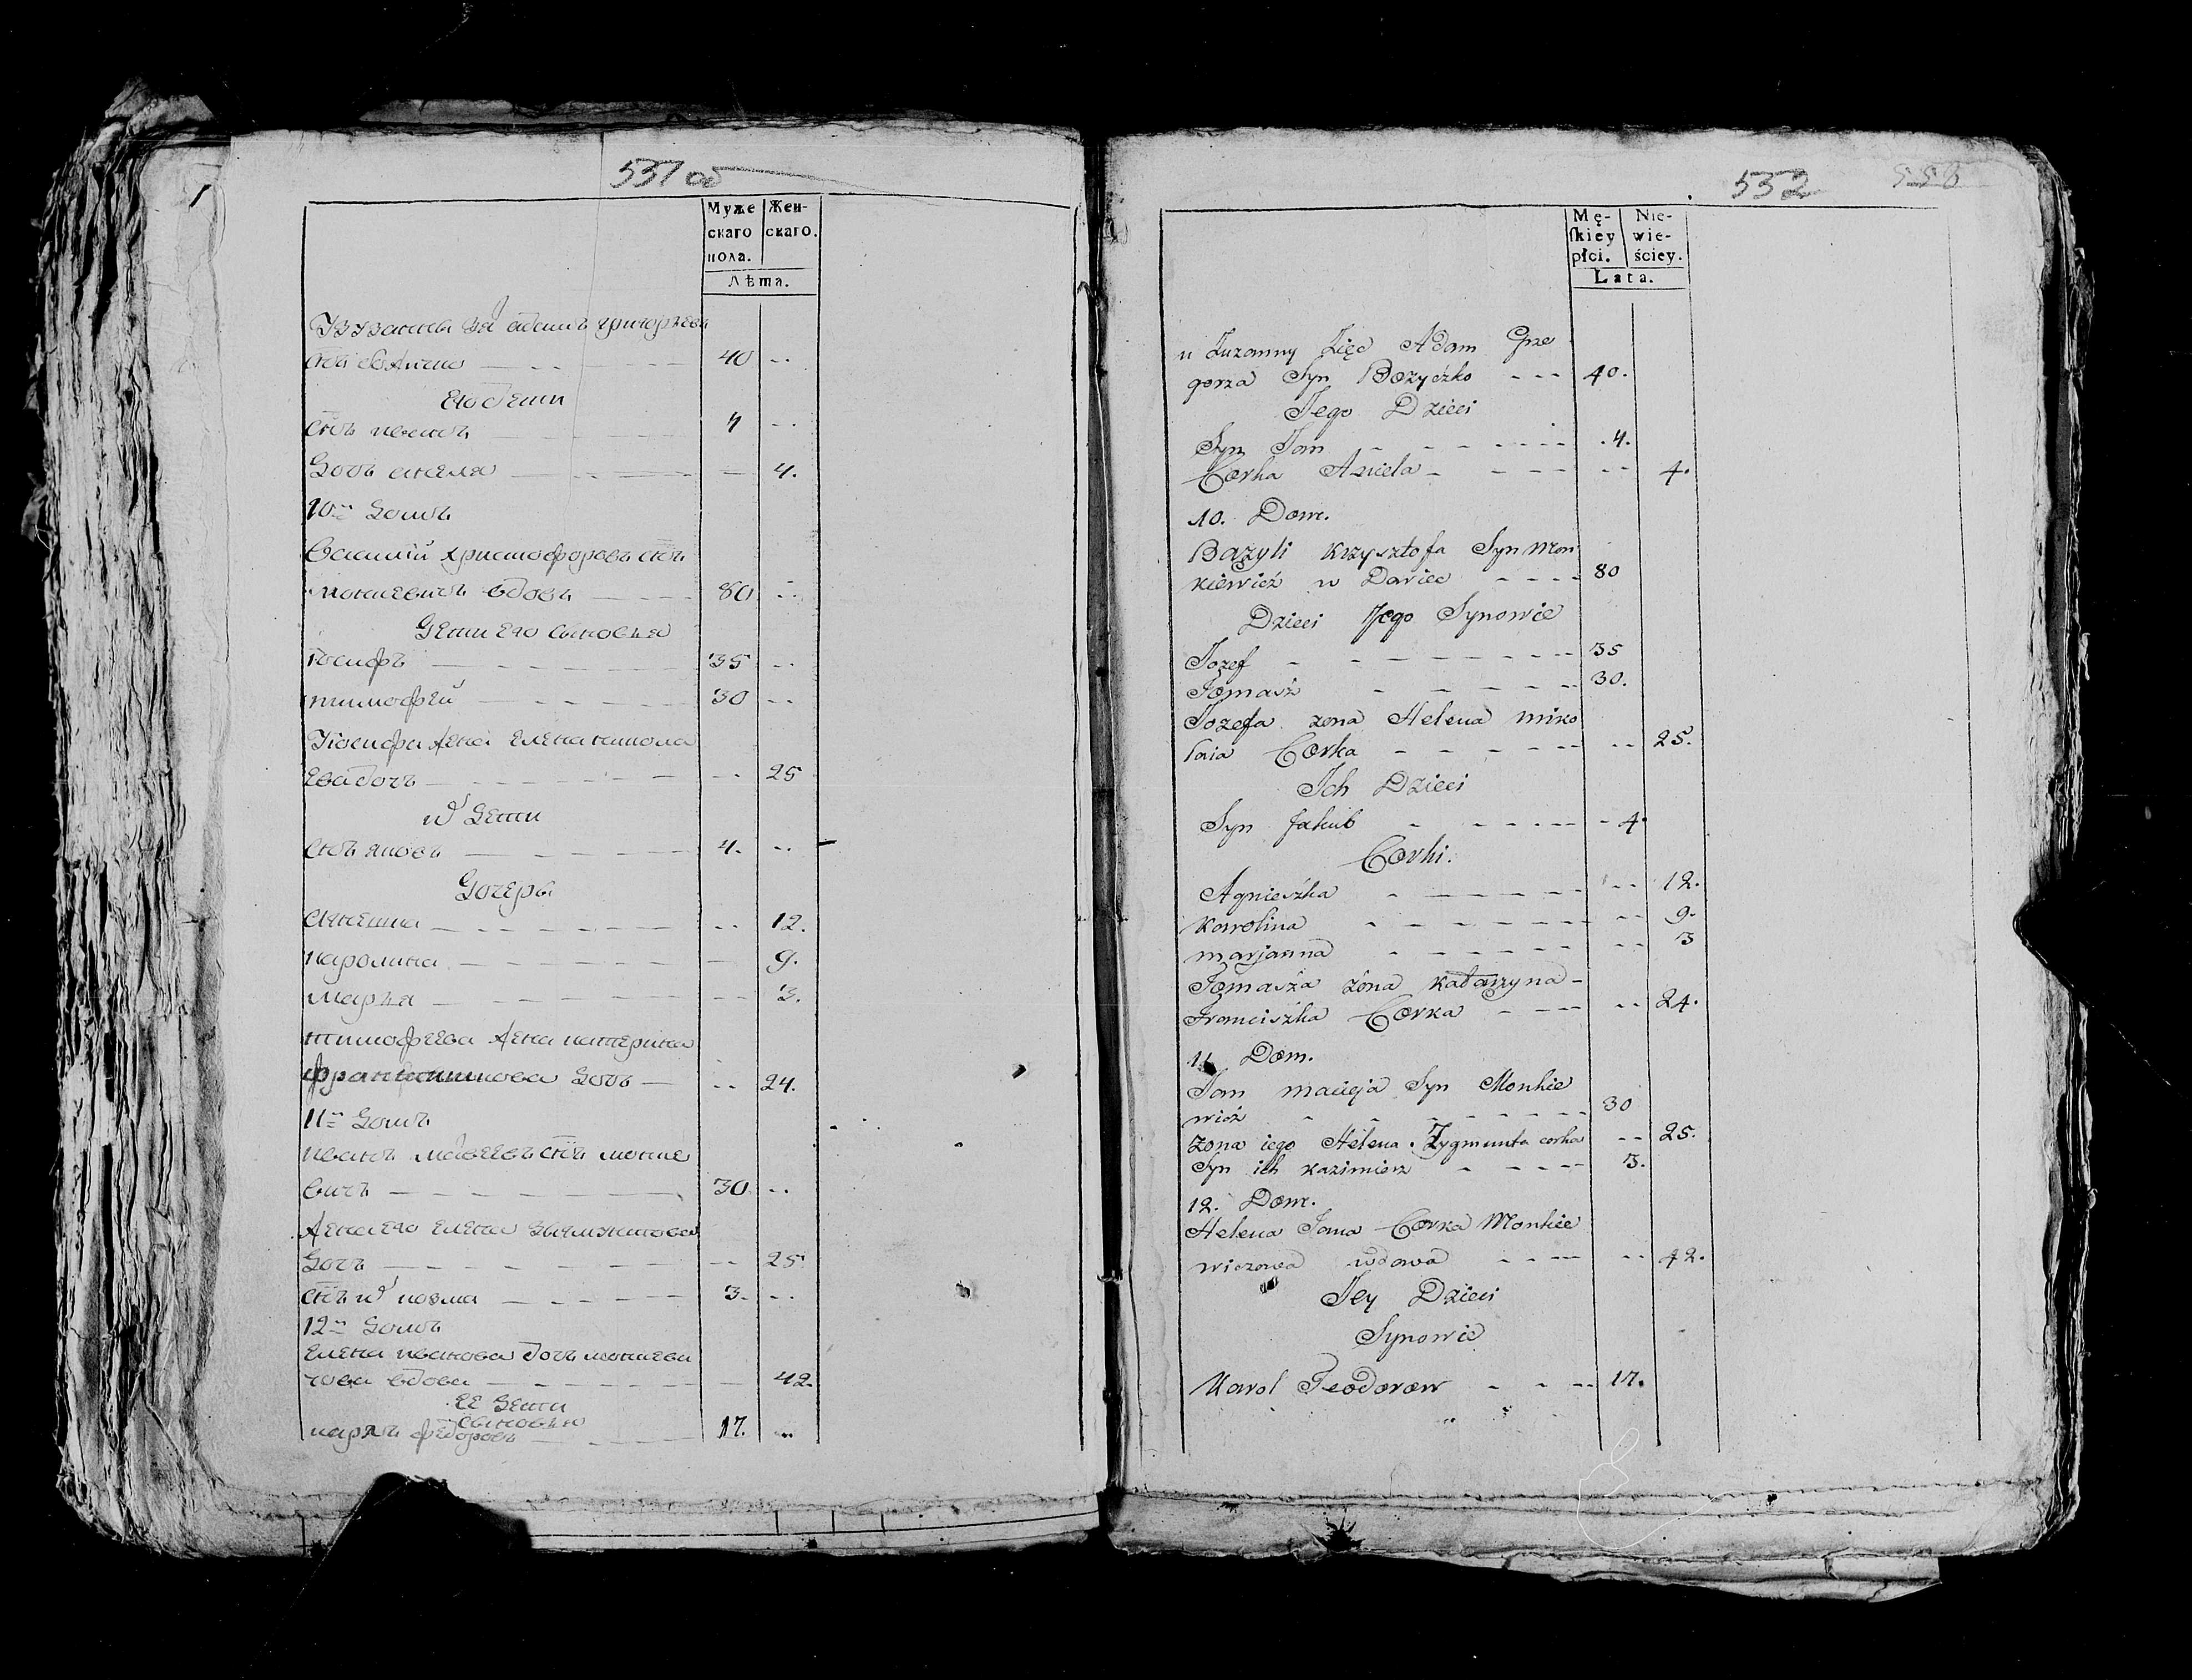 531 об
Муже Жен-
скаго скаго.
пола.
Лѣта.
Узузанны зя адамъ григорьевъ
снъ 40 --
Его дети
снъ иванъ 4 --
Дочь анеля 4.
10й домъ
Василий христофоровъ снъ
монкевичъ вдовъ 80 --
Дети его сыновья
Иосифъ 35 --
тимофей 30 --
Иосифа жена Елена никола
Ева дочь -- 25
их дети
снъ яковъ 4. --
Дочери
Агнешка -- 12.
каролина 9.
марья -- 3.
тимофеева жена катерина
францишкова дочь -- 24.
11й домъ
иванъ мафеевъ снъ монке
вичъ 30 --
Жена его елена зыгмунтова
дочь -- 25
снъ их козма 3. --
12й домъ
Елена иванова дочь монкеви
чова вдова 42.
ЕЕ дети
сыновья
карлъ федоровъ 17. --
532 558
Mę- Nie-
ſkiey wie-
płci. ściey.
Lata.
u Zuzanny Zięc Adam Grze
gorza Syn Bożyczko 40.
Jego Dzieci
Syn Jan 4.
Corka Aniela -- 4.
10. Dom.
Bazyli Krzysztofa Syn Mon
kiewicź w Dowiec 80
Dzieci Jego Synowie
Jozef 35
Tomasz 30.
Jozefa zona Helena miko
łaia Corka -- 25.
Ich Dzieci
Syn Jakub 4.
Corki.
Agnieszka -- 12.
Karolina -- 9.
marjanna -- 3
Tomasza żona Katarzyna
Franciszka Corka -- 24.
11. Dom.
Jan macieja Syn Monkie
wicź 30
Zona iego Helena Zygmunta corka -- 25.
Syn ich Kazimierz 3.
12. Dom.
Helena Jana Corka Monkie
wiczowa wdowa -- 42.
Jey Dzieci
Synowie
Karol Teodorow 17.